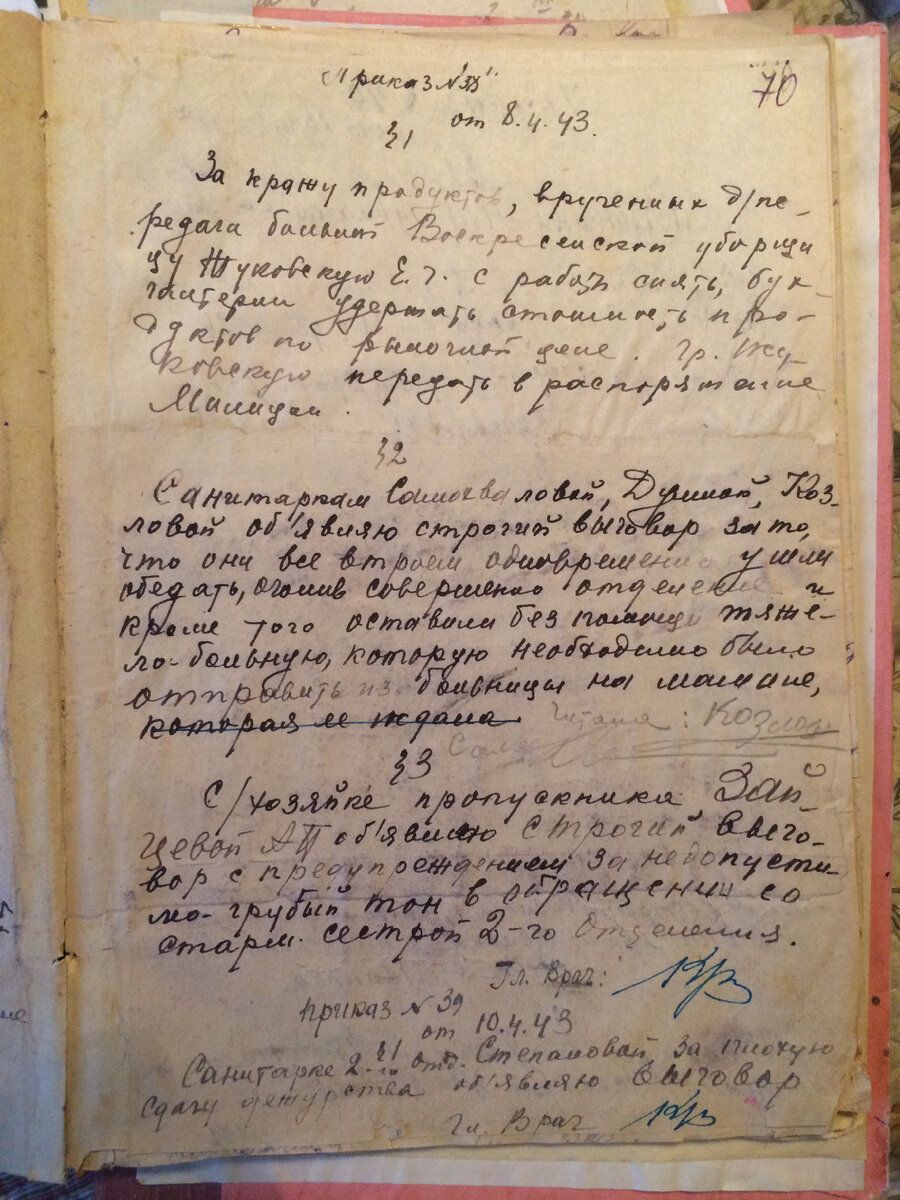 70
Приказ № 38
от 8.4.43.
§1
За кражу продуктов, врученных д/пе-
редачи больной Воскресенской уборщи
цу Жуковскую Е.Г. с работы снять, бух-
галтерии удержать стоимость про-
дуктов по рыночной цене. Гр. Жу-
ковскую передать в распоряжение
Милиции.
§2
Санитаркам Самохваловой, Духиной, Коз-
ловой об'являю строгий выговор за то,
что они все втроем одновременно ушли
обедать, оголив совершенно отделение и
кроме того оставили без помощи тяже-
ло-больную, которую необходимо было
отправить из больницы на машине,
которая ее ждала Читала: Козлова
§3
С/хозяйке пропускника Зай-
цевой АТ об'являю строгий выго-
вор с предупреждением за недопусти-
мо-грубый тон в обращении со
старш. сестрой 2-го Отделения.
Гл. Врач:
приказ № 39
от 10.4.43
§1
Санитарке 2-го отд. Степановой за плохую
сдачу дежурства об'являю выговор
Гл. Врач